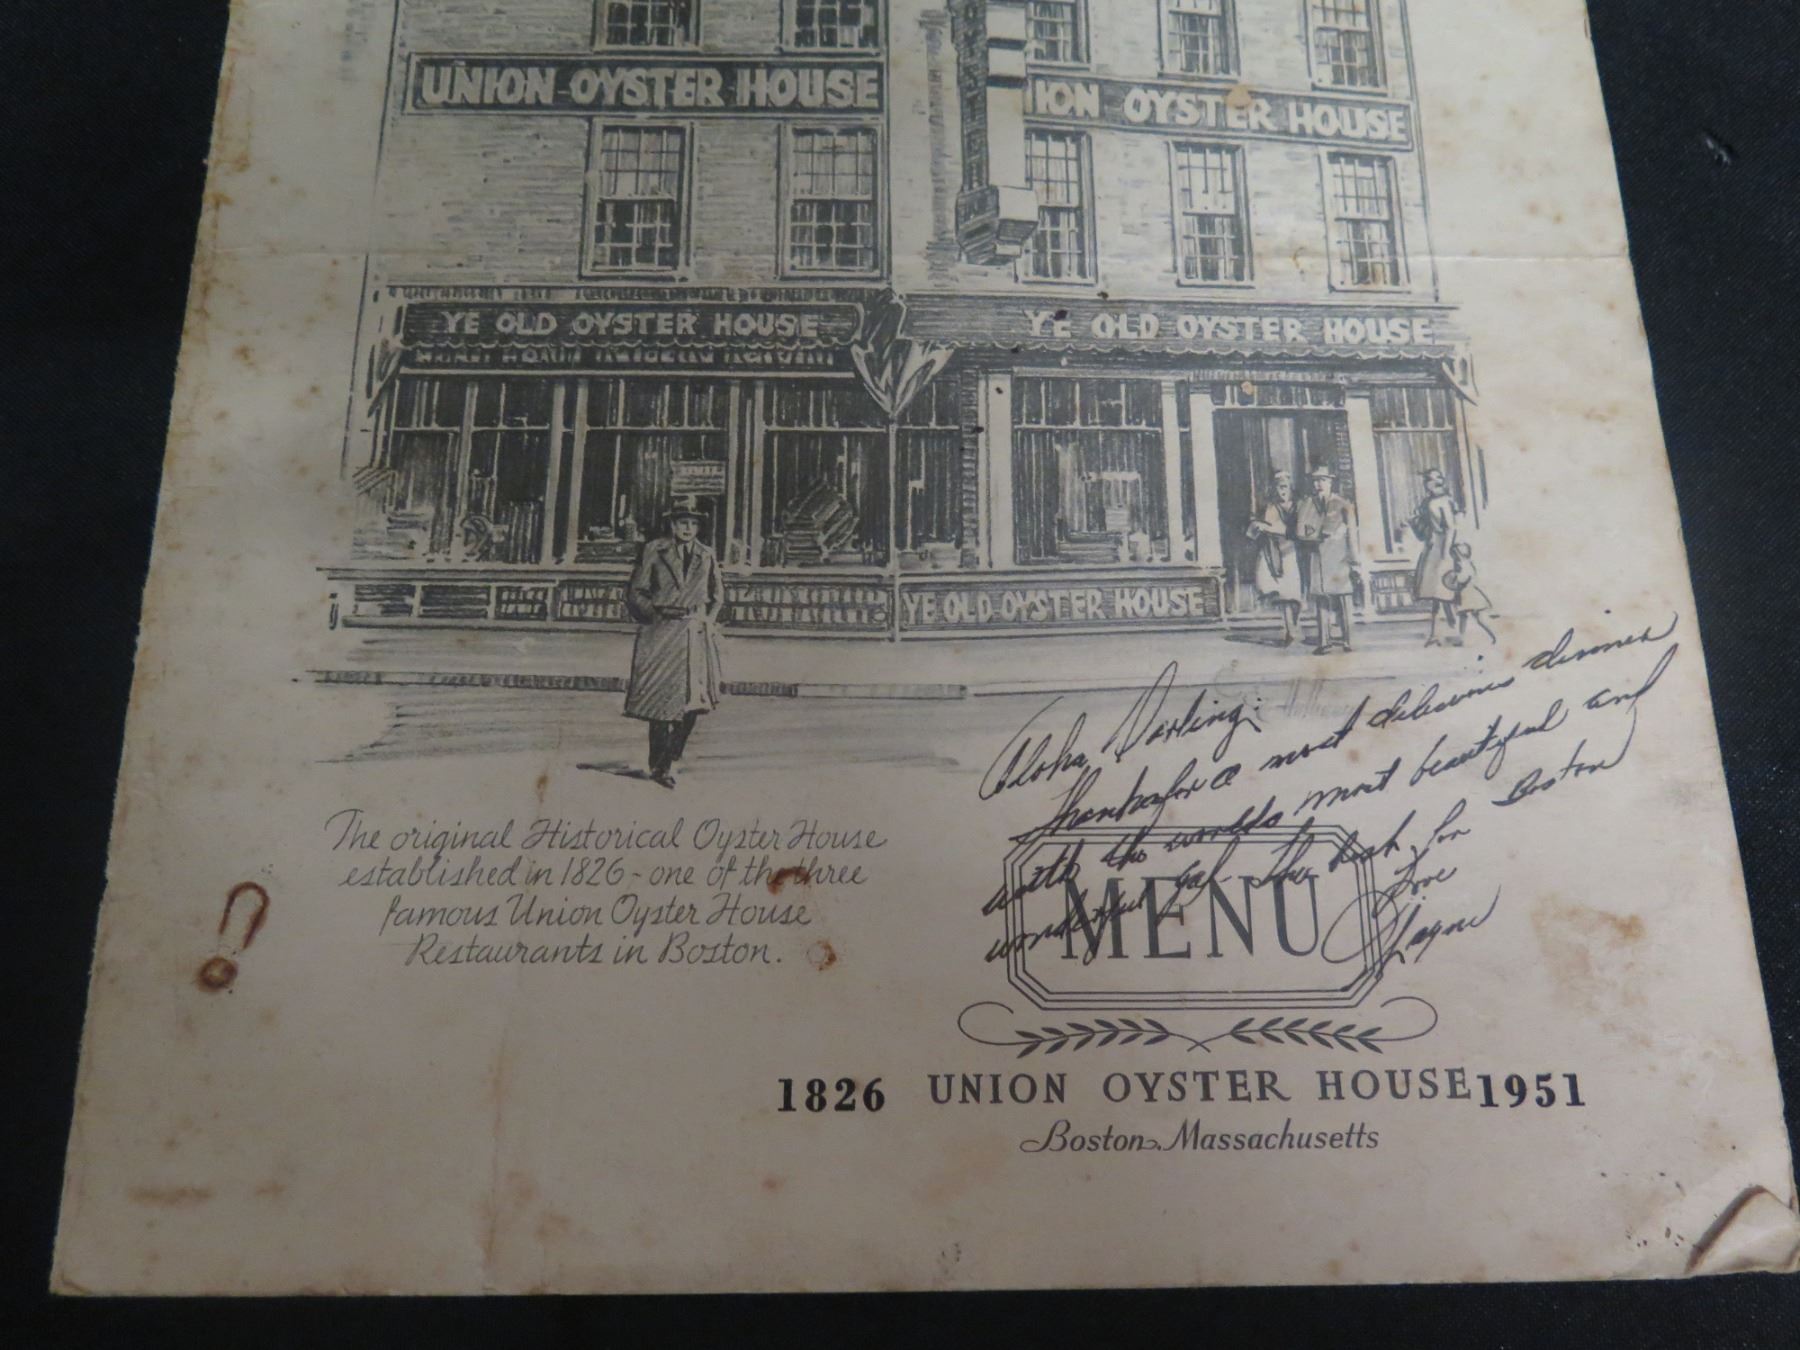 UNION OYSTER HOUSE
ION OYSTER HOUSE
YE OLD OYSTER HOUSE
YE OLD OYSTER HOUSE
YE OLD OYSTER HOUSE
Aloha Darling:
Thanks for a most delicious dinner
with the worlds most beautiful and
wonderful gal. This dish for Boston
Love
Wayne
The original Historical Oyster House
established in 1826 - one of the three
famous Union Oyster House
Restaurants in Boston.
MENU
1826 UNION OYSTER HOUSE 1951
Boston, Massachusetts